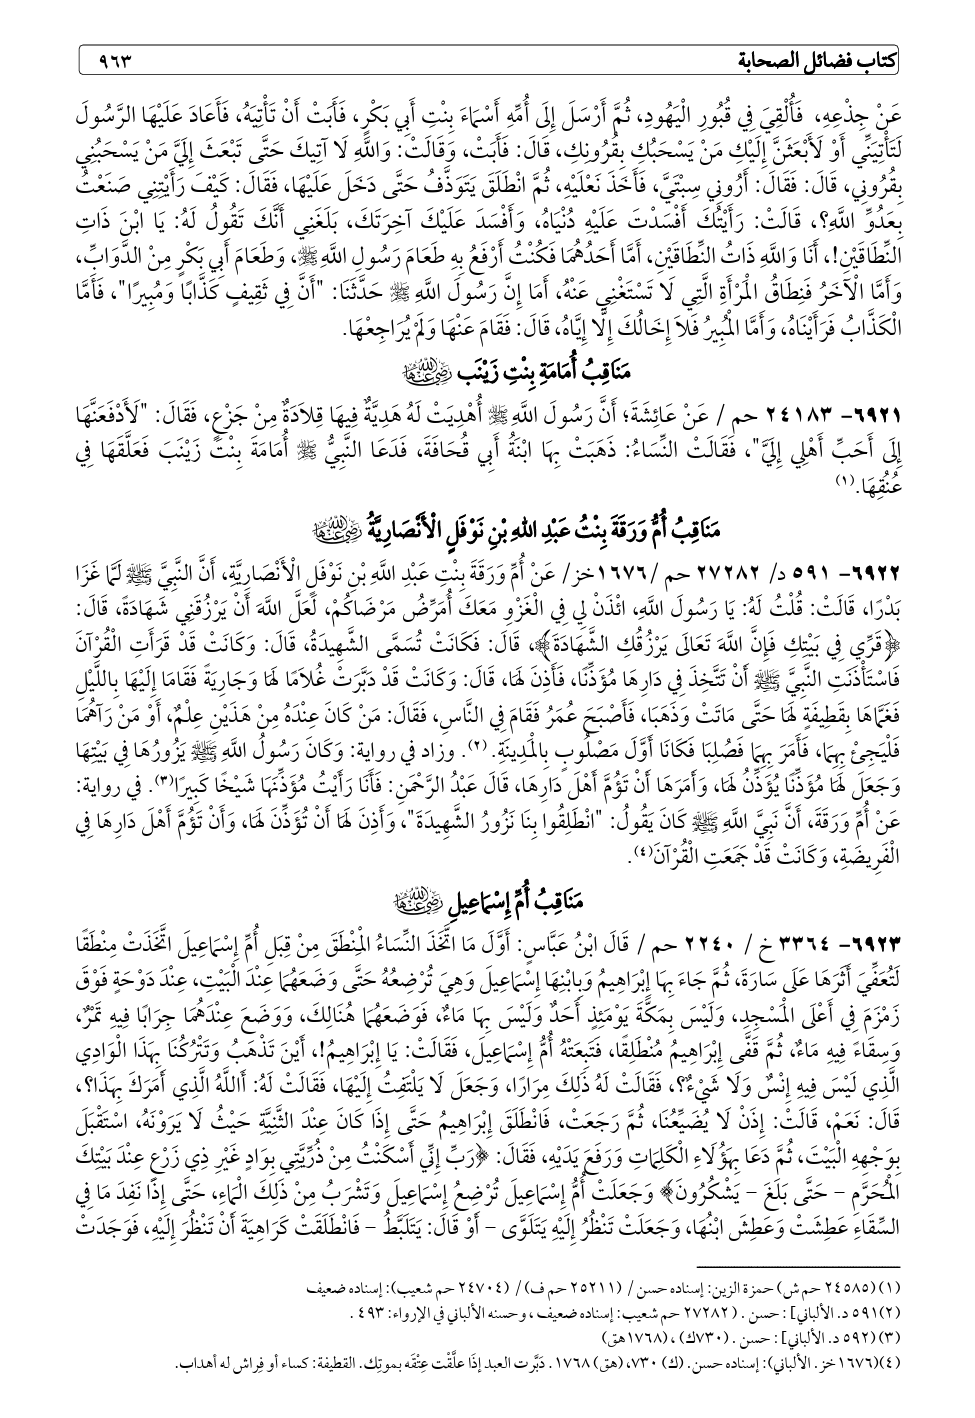 كتاب فضائل الصحابة ٩٦٣
عَنْ جِذْعِهِ، فَأُلْقِيَ فِي قُبُورِ الْيَهُودِ، ثُمَّ أَرْسَلَ إِلَى أُمِّهِ أَسْمَاءَ بِنْتِ أَبِي بَكْرٍ، فَأَبَتْ أَنْ تَأْتِيَهُ، فَأَعَادَ عَلَيْهَا الرَّسُولَ
لَتَأْتِيَنِّي أَوْ لَأَبْعَثَنَّ إِلَيْكِ مَنْ يَسْحَبُكِ بِقُرُونِكِ، قَالَ: فَأَبَتْ، وَقَالَتْ: وَاللَّهِ لَا آتِيكَ حَتَّى تَبْعَثَ إِلَيَّ مَنْ يَسْحَبُنِي
بِقُرُونِي، قَالَ: فَقَالَ: أَرُونِي سِبْتَيَّ، فَأَخَذَ نَعْلَيْهِ، ثُمَّ انْطَلَقَ يَتَوَذَّفُ حَتَّى دَخَلَ عَلَيْهَا، فَقَالَ: كَيْفَ رَأَيْتِنِي صَنَعْتُ
بِعَدُوِّ اللَّهِ؟، قَالَتْ: رَأَيْتُكَ أَفْسَدْتَ عَلَيْهِ دُنْيَاهُ، وَأَفْسَدَ عَلَيْكَ آخِرَتَكَ، بَلَغَنِي أَنَّكَ تَقُولُ لَهُ: يَا ابْنَ ذَاتِ
النِّطَاقَيْنِ!، أَنَا وَاللَّهِ ذَاتُ النِّطَاقَيْنِ، أَمَّا أَحَدُهُمَا فَكُنْتُ أَرْفَعُ بِهِ طَعَامَ رَسُولِ اللَّهِ ﷺ، وَطَعَامَ أَبِي بَكْرٍ مِنَ الدَّوَابِّ،
وَأَمَّا الْآخَرُ فَنِطَاقُ الْمَرْأَةِ الَّتِي لَا تَسْتَغْنِي عَنْهُ، أَمَا إِنَّ رَسُولَ اللَّهِ ﷺ حَدَّثَنَا: "أَنَّ فِي ثَقِيفٍ كَذَّابًا وَمُبِيرًا"، فَأَمَّا
الْكَذَّابُ فَرَأَيْنَاهُ، وَأَمَّا الْمُبِيرُ فَلَا إِخَالُكَ إِلَّا إِيَّاهُ، قَالَ: فَقَامَ عَنْهَا وَلَمْ يُرَاجِعْهَا.
مَنَاقِبُ أُمَامَةِ بِنْتِ زَيْنَب رضي الله عنها
٦٩٢١- ٢٤١٨٣ حم / عَنْ عَائِشَةَ؛ أَنَّ رَسُولَ اللَّهِ ﷺ أُهْدِيَتْ لَهُ هَدِيَّةٌ فِيهَا قِلَادَةٌ مِنْ جَزْعٍ، فَقَالَ: "لَأَدْفَعَنَّهَا
إِلَى أَحَبِّ أَهْلِي إِلَيَّ"، فَقَالَتْ النِّسَاءُ: ذَهَبَتْ بِهَا ابْنَةُ أَبِي قُحَافَةَ، فَدَعَا النَّبِيُّ ﷺ أُمَامَةَ بِنْتَ زَيْنَبَ فَعَلَّقَهَا فِي
عُنُقِهَا.(١)
مَنَاقِبُ أُمُّ وَرَقَةَ بِنْتُ عَبْدِ اللهِ بْنِ نَوْفَلٍ الْأَنْصَارِيَّةُ رضي الله عنها
٦٩٢٢- ٥٩١ د/ ٢٧٢٨٢ حم /١٦٧٦خز/ عَنْ أُمِّ وَرَقَةَ بِنْتِ عَبْدِ اللَّهِ بْنِ نَوْفَلٍ الْأَنْصَارِيَّةِ، أَنَّ النَّبِيَّ ﷺ لَمَّا غَزَا
بَدْرًا، قَالَتْ: قُلْتُ لَهُ: يَا رَسُولَ اللَّهِ، ائْذَنْ لِي فِي الْغَزْوِ مَعَكَ أُمَرِّضُ مَرْضَاكُمْ، لَعَلَّ اللَّهَ أَنْ يَرْزُقَنِي شَهَادَةً، قَالَ:
﴿قَرِّي فِي بَيْتِكِ فَإِنَّ اللَّهَ تَعَالَى يَرْزُقُكِ الشَّهَادَةَ﴾، قَالَ: فَكَانَتْ تُسَمَّى الشَّهِيدَةُ، قَالَ: وَكَانَتْ قَدْ قَرَأَتِ الْقُرْآنَ
فَاسْتَأْذَنَتِ النَّبِيَّ ﷺ أَنْ تَتَّخِذَ فِي دَارِهَا مُؤَذِّنًا، فَأَذِنَ لَهَا، قَالَ: وَكَانَتْ قَدْ دَبَّرَتْ غُلَامًا لَهَا وَجَارِيَةً فَقَامَا إِلَيْهَا بِاللَّيْلِ
فَغَمَّاهَا بِقَطِيفَةٍ لَهَا حَتَّى مَاتَتْ وَذَهَبَا، فَأَصْبَحَ عُمَرُ فَقَامَ فِي النَّاسِ، فَقَالَ: مَنْ كَانَ عِنْدَهُ مِنْ هَذَيْنِ عِلْمٌ، أَوْ مَنْ رَآهُمَا
فَلْيَجِئْ بِهِمَا، فَأَمَرَ بِهِمَا فَصُلِبَا فَكَانَا أَوَّلَ مَصْلُوبٍ بِالْمَدِينَةِ. (٢). وزاد في رواية: وَكَانَ رَسُولُ اللَّهِ ﷺ يَزُورُهَا فِي بَيْتِهَا
وَجَعَلَ لَهَا مُؤَذِّنًا يُؤَذِّنُ لَهَا، وَأَمَرَهَا أَنْ تَؤُمَّ أَهْلَ دَارِهَا، قَالَ عَبْدُ الرَّحْمَنِ: فَأَنَا رَأَيْتُ مُؤَذِّنَهَا شَيْخًا كَبِيرًا(٣). في رواية:
عَنْ أُمِّ وَرَقَةَ، أَنَّ نَبِيَّ اللَّهِ ﷺ كَانَ يَقُولُ: "انْطَلِقُوا بِنَا نَزُورُ الشَّهِيدَةَ"، وَأَذِنَ لَهَا أَنْ تُؤَذِّنَ لَهَا، وَأَنْ تَؤُمَّ أَهْلَ دَارِهَا فِي
الْفَرِيضَةِ، وَكَانَتْ قَدْ جَمَعَتِ الْقُرْآنَ(٤).
مَنَاقِبُ أُمِّ إِسْمَاعِيلِ رضي الله عنها
٦٩٢٣- ٣٣٦٤ خ / ٢٢٤٠ حم / قَالَ ابْنُ عَبَّاسٍ: أَوَّلَ مَا اتَّخَذَ النِّسَاءُ الْمِنْطَقَ مِنْ قِبَلِ أُمِّ إِسْمَاعِيلَ اتَّخَذَتْ مِنْطَقًا
لَتُعَفِّيَ أَثَرَهَا عَلَى سَارَةَ، ثُمَّ جَاءَ بِهَا إِبْرَاهِيمُ وَبِابْنِهَا إِسْمَاعِيلَ وَهِيَ تُرْضِعُهُ حَتَّى وَضَعَهُمَا عِنْدَ الْبَيْتِ، عِنْدَ دَوْحَةٍ فَوْقَ
زَمْزَمَ فِي أَعْلَى الْمَسْجِدِ، وَلَيْسَ بِمَكَّةَ يَوْمَئِذٍ أَحَدٌ وَلَيْسَ بِهَا مَاءٌ، فَوَضَعَهُمَا هُنَالِكَ، وَوَضَعَ عِنْدَهُمَا جِرَابًا فِيهِ تَمْرٌ،
وَسِقَاءً فِيهِ مَاءٌ، ثُمَّ قَفَّى إِبْرَاهِيمُ مُنْطَلِقًا، فَتَبِعَتْهُ أُمُّ إِسْمَاعِيلَ، فَقَالَتْ: يَا إِبْرَاهِيمُ!، أَيْنَ تَذْهَبُ وَتَتْرُكُنَا بِهَذَا الْوَادِي
الَّذِي لَيْسَ فِيهِ إِنْسٌ وَلَا شَيْءٌ؟، فَقَالَتْ لَهُ ذَلِكَ مِرَارًا، وَجَعَلَ لَا يَلْتَفِتُ إِلَيْهَا، فَقَالَتْ لَهُ: أَاللَّهُ الَّذِي أَمَرَكَ بِهَذَا؟،
قَالَ: نَعَمْ، قَالَتْ: إِذَنْ لَا يُضَيِّعُنَا، ثُمَّ رَجَعَتْ، فَانْطَلَقَ إِبْرَاهِيمُ حَتَّى إِذَا كَانَ عِنْدَ الثَّنِيَّةِ حَيْثُ لَا يَرَوْنَهُ، اسْتَقْبَلَ
بِوَجْهِهِ الْبَيْتَ، ثُمَّ دَعَا بِهَؤُلَاءِ الْكَلِمَاتِ وَرَفَعَ يَدَيْهِ، فَقَالَ: ﴿رَبِّ إِنِّي أَسْكَنْتُ مِنْ ذُرِّيَّتِي بِوَادٍ غَيْرِ ذِي زَرْعٍ عِنْدَ بَيْتِكَ
الْمُحَرَّمِ – حَتَّى بَلَغَ – يَشْكُرُونَ﴾ وَجَعَلَتْ أُمُّ إِسْمَاعِيلَ تُرْضِعُ إِسْمَاعِيلَ وَتَشْرَبُ مِنْ ذَلِكَ الْمَاءِ، حَتَّى إِذَا نَفِدَ مَا فِي
السِّقَاءِ عَطِشَتْ وَعَطِشَ ابْنُهَا، وَجَعَلَتْ تَنْظُرُ إِلَيْهِ يَتَلَوَّى – أَوْ قَالَ: يَتَلَبَّطُ – فَانْطَلَقَتْ كَرَاهِيَةَ أَنْ تَنْظُرَ إِلَيْهِ، فَوَجَدَتْ
(١)(٢٤٥٨٥ حم ش) حمزة الزين: إسناده حسن / (٢٥٢١١ حم ف)/ (٢٤٧٠٤ حم شعيب): إسناده ضعيف
(٢)٥٩١ د. الألباني]: حسن . (٢٧٢٨٢ حم شعيب: إسناده ضعيف ، وحسنه الألباني في الإرواء: ٤٩٣ .
(٣)(٥٩٢ د. الألباني]: حسن . (٧٣٠ك) ، (١٧٦٨هق)
(٤)(١٦٧٦خز. الألباني): إسناده حسن. (ك) ٧٣٠، (هق) ١٧٦٨. دَبَّرت العبد إذَا علَّقْت عِتْقَه بموتِك. القطيفة: كساء أو فِراش له أهداب.